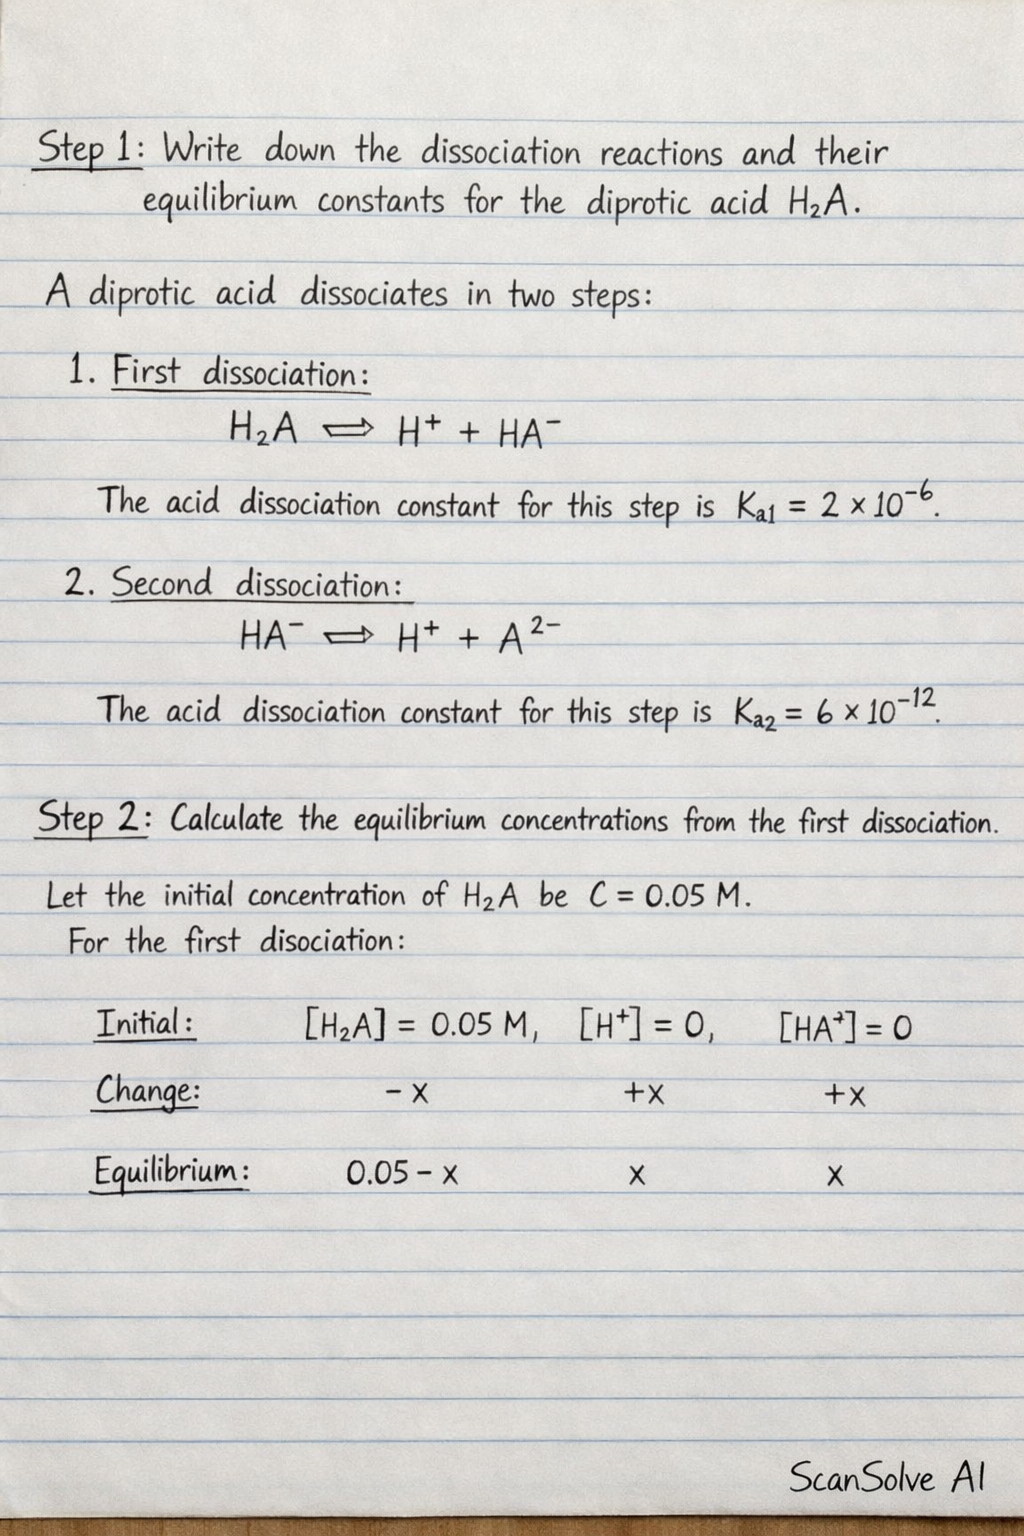 Step 1: Write down the dissociation reactions and their
equilibrium constants for the diprotic acid H₂A.
A diprotic acid dissociates in two steps:
1. First dissociation:
H₂A ⇌ H⁺ + HA⁻
The acid dissociation constant for this step is Kₐ₁ = 2 × 10⁻⁶.
2. Second dissociation:
HA⁻ ⇌ H⁺ + A²⁻
The acid dissociation constant for this step is Kₐ₂ = 6 × 10⁻¹².
Step 2: Calculate the equilibrium concentrations from the first dissociation.
Let the initial concentration of H₂A be C = 0.05 M.
For the first disociation:
Initial: [H₂A] = 0.05 M, [H⁺] = 0, [HA⁺] = 0
Change: - x +x +x
Equilibrium: 0.05 - x x x
ScanSolve AI